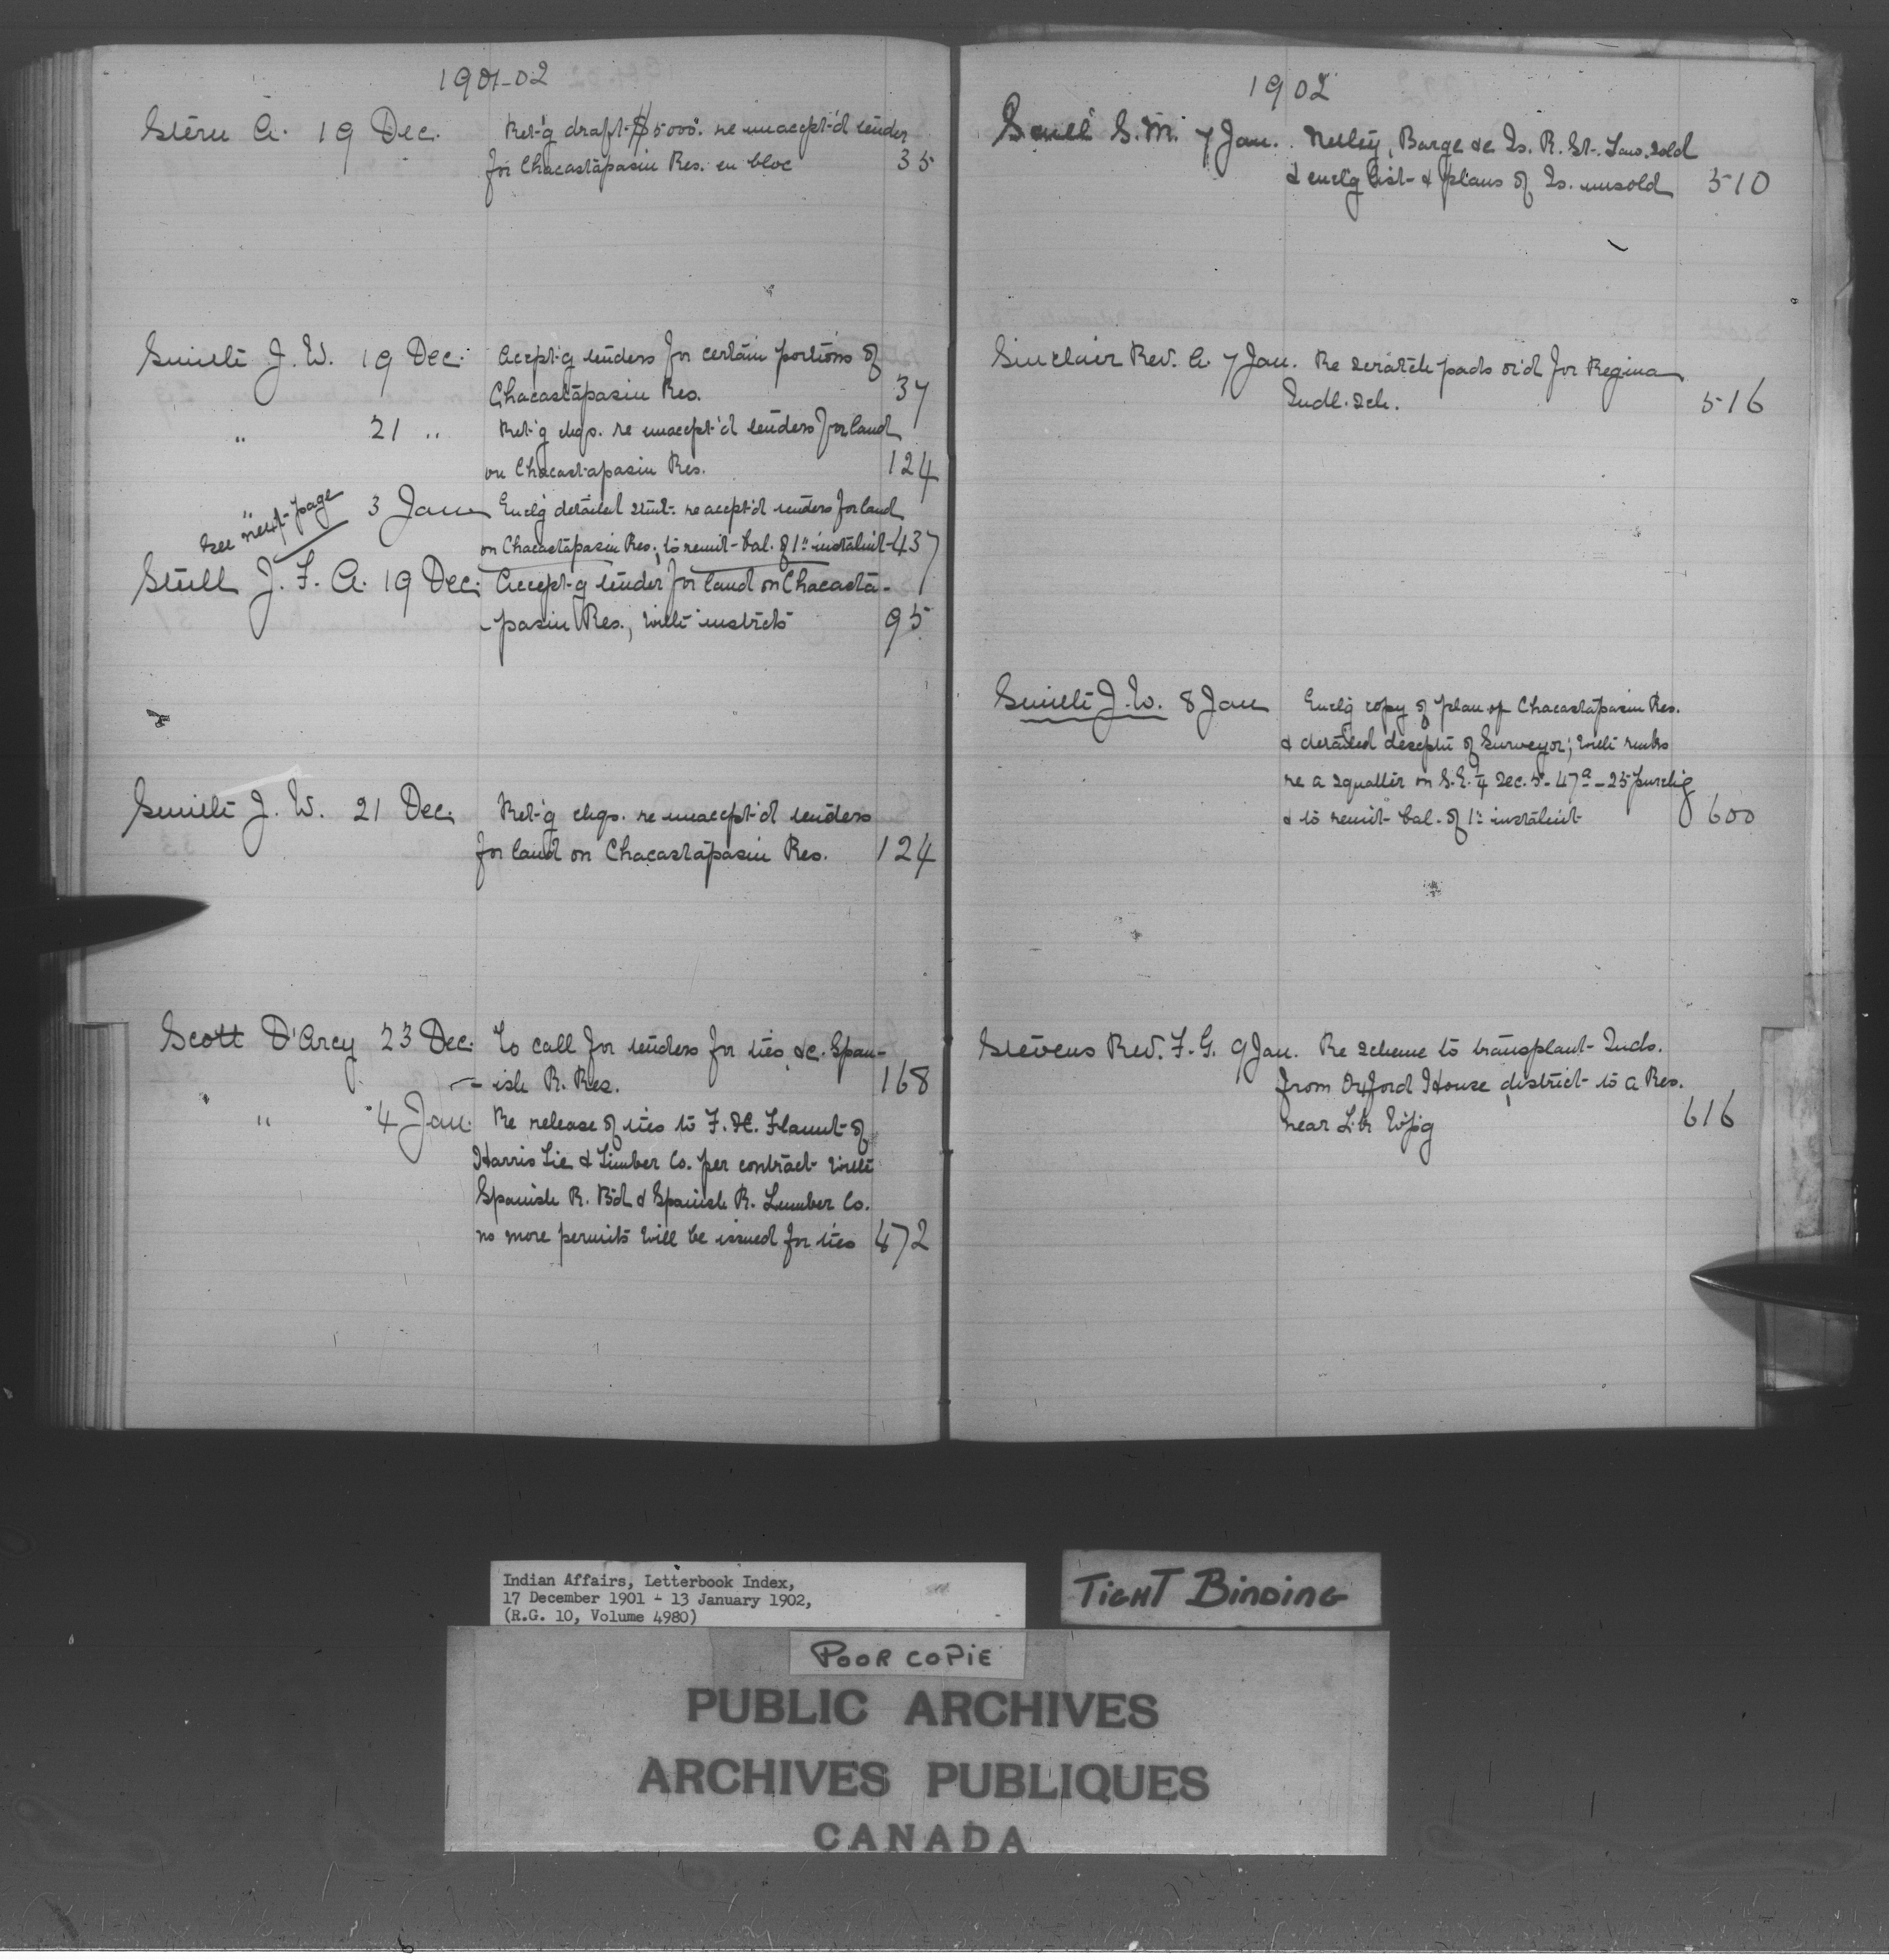 1901-02
Stern A. 19 Dec. Ret'g draft $5000. re unaccept'd tender
for Chacastapasin Res. en bloc 35
Smith J. W. 19 Dec. Accept'g tenders for certain portions of
Chacastapasin Res. 37
" 21 " Ret'g chqs. re unaccept'd tenders for land
on Chacastapasin Res. 124
" 3 Jan Encl'g detailed stmt. re accept'd tenders for land
see next page
on Chacastapasin Res., to remit bal. of 1st instalmt 437
Stull J. F. A. 19 Dec. Accept'g tender for land on Chacasta-
-pasin Res., with instrcts 95
Smith J. W. 21 Dec. Ret'g chqs. re unaccept'd tenders
for land on Chacastapasin Res. 124
Scott D'Arcy 23 Dec. To call for tenders for ties &c. Span-
-ish R. Res. 168
" 4 Jan. Re release of ties to F. H. of
Harris Tie & Timber Co. per contract with
Spanish R. Bd & Spanish R. Lumber Co.
no more permits will be issued for ties 472
1902
S. M. 7 Jan. Nelley, Barge &c Is. R. St. Law. sold
& encl'g list & plans of Is. unsold 510
Sinclair Rev. A. 7 Jan. Re scratch pads or'd for Regina
Indl. Sch. 516
Smith J. W. 8 Jan Encl'g copy of plan of Chacastapasin Res.
& detailed descptn of Surveyor; with remks
re a squatter on S.E. 1/4 Sec. 5-47a-25 purchg
& to remit bal. of 1st instalmt 600
Stevens Rev. F. G. 9 Jan. Re scheme to transplant Inds.
from Oxford House district to a Res.
near L. Wpg 616
Indian Affairs, Letterbook Index,
17 December 1901 - 13 January 1902,
(R.G. 10, Volume 4980)
TIGHT BINDING
POOR COPIE
PUBLIC ARCHIVES
ARCHIVES PUBLIQUES
CANADA